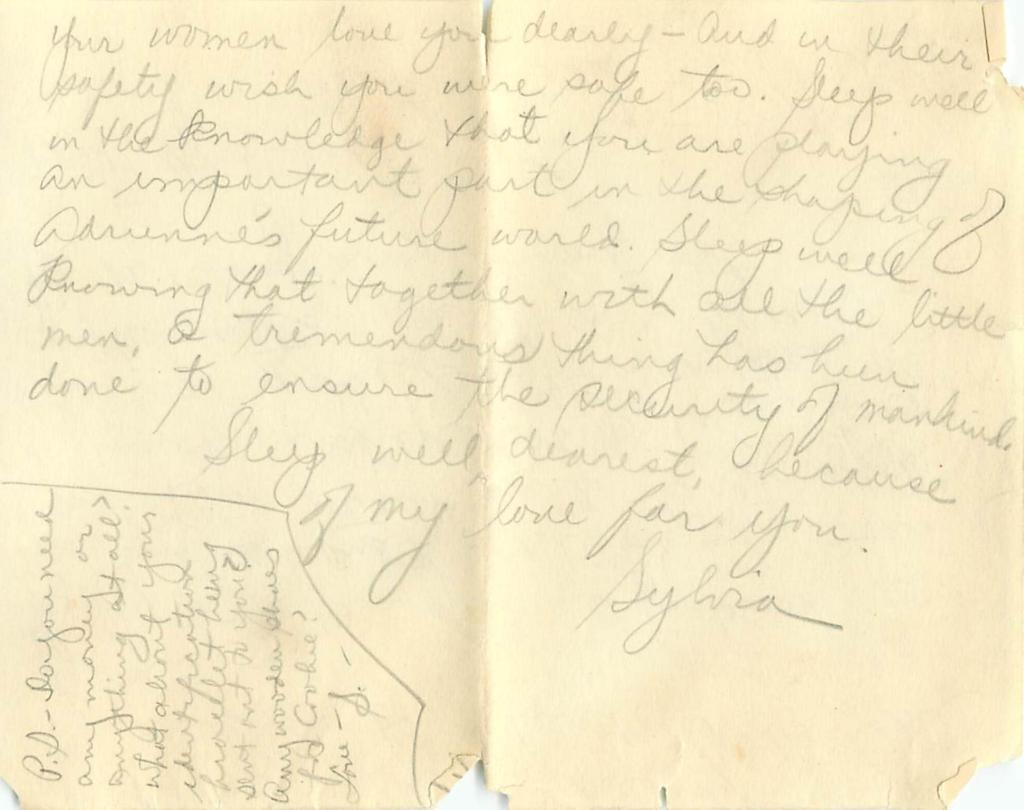 your women love you dearly - And in their
safety wish you were safe too. Sleep well
in the knowledge that you are playing
an important part in the shaping of
Adrienne's future world. Sleep well
knowing that together with all the little
men, a tremendous thing has been
done to ensure the security of mankind.
Sleep well, dearest, because
of my love for you.
Sylvia
P.S. - Do you need
any money or
anything at all?
What about your
identification
bracelet being
sent out to you?
Any wooden shoes
for Cookie?
Love - S. -